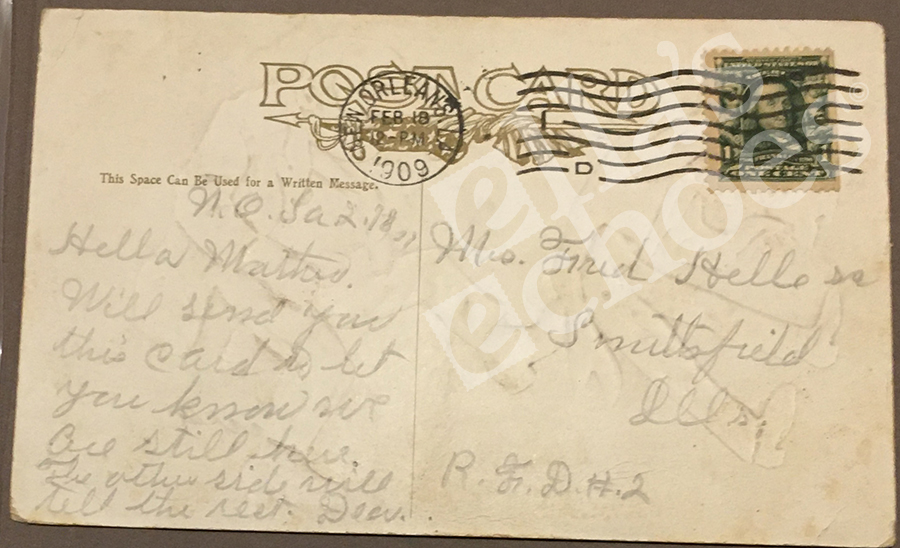 POST CARD
NEW ORLEANS, LA.
FEB 18
PM
1909
D
UNITED STATES OF
ONE CENT
This Space Can Be Used for a Written Message.
N.O. La 2, 18
Hello
Will send you
this card to let
you know we
are still here.
The other side will
tell the rest.
Mrs. Fred Helle
Smithsfield
Ills.
R. F. D. #. 2
echoes